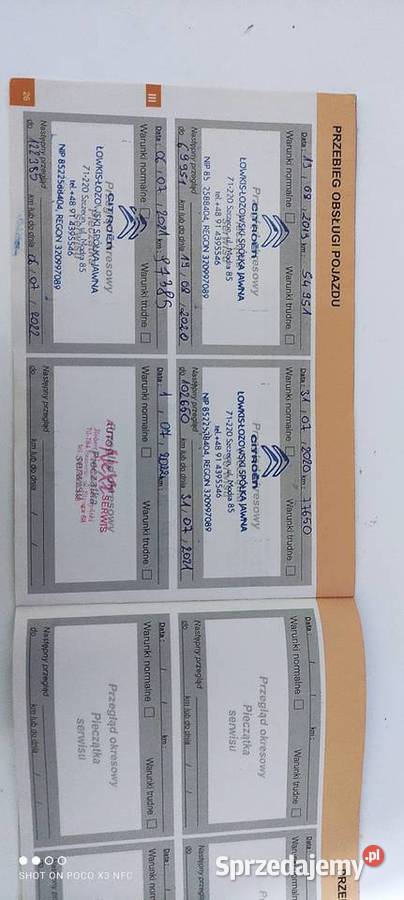 PRZEBIEG OBSŁUGI POJAZDU
Data : 19 / 08 / 2019 km : 54951
Warunki normalne Warunki trudne
CITROËN
ŁOWKIS-ŁOZOWSKI SPÓŁKA JAWNA
71-220 Szczecin, ul. Modra 85
tel.+48 91 4395546
NIP 85 2588404, REGON 320997089
Następny przegląd
do 69951 km lub do dnia 19 / 08 / 2020
Data : 31 / 07 / 2020 km : 77650
Warunki normalne Warunki trudne
CITROËN
ŁOWKIS-ŁOZOWSKI SPÓŁKA JAWNA
71-220 Szczecin, ul. Modra 85
tel.+48 91 4395546
NIP 8522588404, REGON 320997089
Następny przegląd
do 102650 km lub do dnia 31 / 07 / 2021
Data : 02 / 07 / 2021 97385
Warunki normalne Warunki trudne
CITROËN
ŁOWKIS-ŁOZOWSKI SPÓŁKA JAWNA
71-220 Szczecin, ul. Modra 85
tel.+48 91 4395546
NIP 8522588404, REGON 320997089
Następny przegląd
do 122385 km lub do dnia 02 / 07 / 2022
Data : 1 / 07 / 2022 km :
Warunki normalne Warunki trudne
SERWIS
Pieczątka
serwisu
Następny przegląd
do km lub do dnia / /
III
26
Data : / / km :
Warunki normalne Warunki trudne
Przegląd okresowy
Pieczątka
serwisu
Następny przegląd
do km lub do dnia / /
Data : / / km :
Warunki normalne Warunki trudne
Przegląd okresowy
Pieczątka
serwisu
Następny przegląd
do km lub do dnia / /
PRZE
SHOT ON POCO X3 NFC
Sprzedajemy.pl